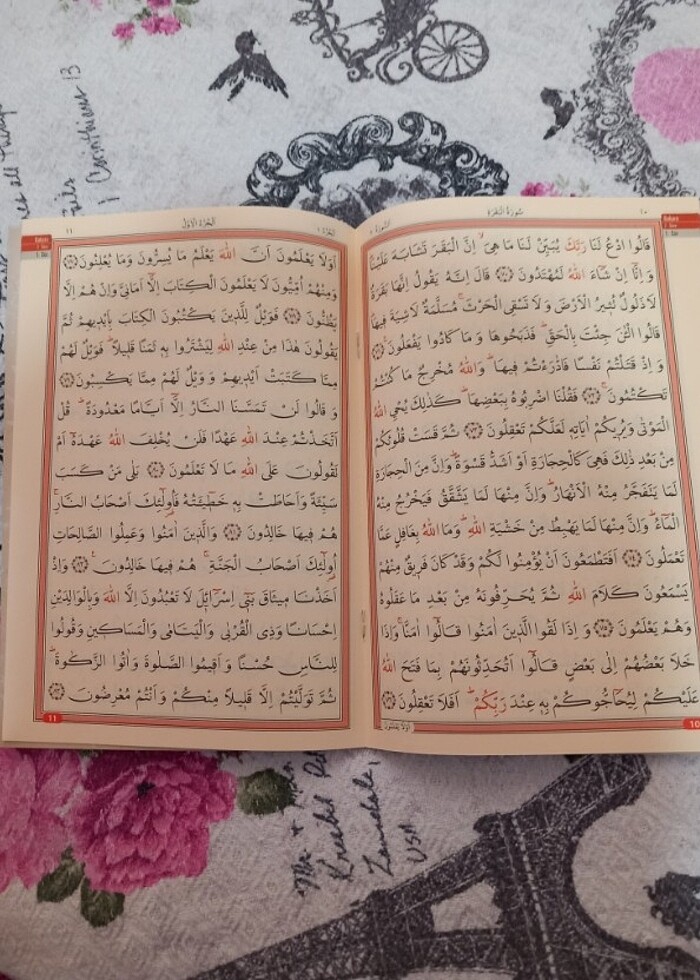 ١٠
سُورَةُ الْبَقَرَةِ
قَالُوا ادْعُ لَنَا رَبَّكَ يُبَيِّنْ لَنَا مَا هِىَۙ اِنَّ الْبَقَرَ تَشَابَهَ عَلَيْنَاۜ
وَ اِنَّٓا اِنْ شَٓاءَ اللّٰهُ لَمُهْتَدُونَ ﴿٧٠﴾ قَالَ اِنَّهُ يَقُولُ اِنَّهَا بَقَرَةٌ
لَا ذَلُولٌ تُثٖيرُ الْاَرْضَ وَ لَا تَسْقِى الْحَرْثَۚ مُسَلَّمَةٌ لَا شِيَةَ فٖيهَاۜ
قَالُوا الْـٰٔنَ جِئْتَ بِالْحَقِّۜ فَذَبَحُوهَا وَ مَا كَادُوا يَفْعَلُونَ ﴿٧١﴾
وَ اِذْ قَتَلْتُمْ نَفْسًا فَادّٰرَءْتُمْ فٖيهَاۜ وَاللّٰهُ مُخْرِجٌ مَا كُنْتُمْ
تَكْتُمُونَۚ ﴿٧٢﴾ فَقُلْنَا اضْرِبُوهُ بِبَعْضِهَاۜ كَذٰلِكَ يُحْيِى اللّٰهُ
الْمَوْتٰى وَيُرٖيكُمْ اٰيَاتِهٖ لَعَلَّكُمْ تَعْقِلُونَ ﴿٧٣﴾ ثُمَّ قَسَتْ قُلُوبُكُمْ
مِنْ بَعْدِ ذٰلِكَ فَهِىَ كَالْحِجَارَةِ اَوْ اَشَدُّ قَسْوَةًۜ وَاِنَّ مِنَ الْحِجَارَةِ
لَمَا يَتَفَجَّرُ مِنْهُ الْاَنْهَارُۜ وَاِنَّ مِنْهَا لَمَا يَشَّقَّقُ فَيَخْرُجُ مِنْهُ
الْمَٓاءُۜ وَاِنَّ مِنْهَا لَمَا يَهْبِطُ مِنْ خَشْيَةِ اللّٰهِۜ وَمَا اللّٰهُ بِغَافِلٍ عَمَّا
تَعْمَلُونَ ﴿٧٤﴾ اَفَتَطْمَعُونَ اَنْ يُؤْمِنُوا لَكُمْ وَقَدْ كَانَ فَرٖيقٌ مِنْهُمْ
يَسْمَعُونَ كَلَامَ اللّٰهِ ثُمَّ يُحَرِّفُونَهُ مِنْ بَعْدِ مَا عَقَلُوهُ
وَهُمْ يَعْلَمُونَ ﴿٧٥﴾ وَ اِذَا لَقُوا الَّذٖينَ اٰمَنُوا قَالُٓوا اٰمَنَّاۚ وَاِذَا
خَلَا بَعْضُهُمْ اِلٰى بَعْضٍ قَالُٓوا اَتُحَدِّثُونَهُمْ بِمَا فَتَحَ اللّٰهُ
عَلَيْكُمْ لِيُحَٓاجُّوكُمْ بِهٖ عِنْدَ رَبِّكُمْۜ اَفَلَا تَعْقِلُونَ ﴿٧٦﴾
اَوَلَا يَعْلَمُونَ
10
الْجُزْءُ ١
الْجُزْءُ الْاَوَّلُ
١١
اَوَلَا يَعْلَمُونَ اَنَّ اللّٰهَ يَعْلَمُ مَا يُسِرُّونَ وَمَا يُعْلِنُونَ ﴿٧٧﴾
وَمِنْهُمْ اُمِّيُّونَ لَا يَعْلَمُونَ الْكِتَابَ اِلَّٓا اَمَانِىَّ وَاِنْ هُمْ اِلَّا
يَظُنُّونَ ﴿٧٨﴾ فَوَيْلٌ لِلَّذٖينَ يَكْتُبُونَ الْكِتَابَ بِاَيْدٖيهِمْ ثُمَّ
يَقُولُونَ هٰذَا مِنْ عِنْدِ اللّٰهِ لِيَشْتَرُوا بِهٖ ثَمَنًا قَلٖيلًاۜ فَوَيْلٌ لَهُمْ
مِمَّا كَتَبَتْ اَيْدٖيهِمْ وَ وَيْلٌ لَهُمْ مِمَّا يَكْسِبُونَ ﴿٧٩﴾
وَ قَالُوا لَنْ تَمَسَّنَا النَّارُ اِلَّٓا اَيَّامًا مَعْدُودَةًۜ قُلْ
اَتَّخَذْتُمْ عِنْدَ اللّٰهِ عَهْدًا فَلَنْ يُخْلِفَ اللّٰهُ عَهْدَهُٓ اَمْ
تَقُولُونَ عَلَى اللّٰهِ مَا لَا تَعْلَمُونَ ﴿٨٠﴾ بَلٰى مَنْ كَسَبَ
سَيِّئَةً وَاَحَاطَتْ بِهٖ خَطٖٓيـَٔتُهُ فَاُولٰٓئِكَ اَصْحَابُ النَّارِۚ
هُمْ فٖيهَا خَالِدُونَ ﴿٨١﴾ وَالَّذٖينَ اٰمَنُوا وَعَمِلُوا الصَّالِحَاتِ
اُولٰٓئِكَ اَصْحَابُ الْجَنَّةِۚ هُمْ فٖيهَا خَالِدُونَۚ ﴿٨٢﴾ وَاِذْ
اَخَذْنَا مٖيثَاقَ بَنٖٓى اِسْرَٓائٖلَ لَا تَعْبُدُونَ اِلَّا اللّٰهَ وَبِالْوَالِدَيْنِ
اِحْسَانًا وَذِى الْقُرْبٰى وَالْيَتَامٰى وَالْمَسَاكٖينِ وَقُولُوا
لِلنَّاسِ حُسْنًا وَ اَقٖيمُوا الصَّلٰوةَ وَ اٰتُوا الزَّكٰوةَۜ
ثُمَّ تَوَلَّيْتُمْ اِلَّا قَلٖيلًا مِنْكُمْ وَ اَنْتُمْ مُعْرِضُونَ ﴿٨٣﴾
11
1 Corinthians 13
USA